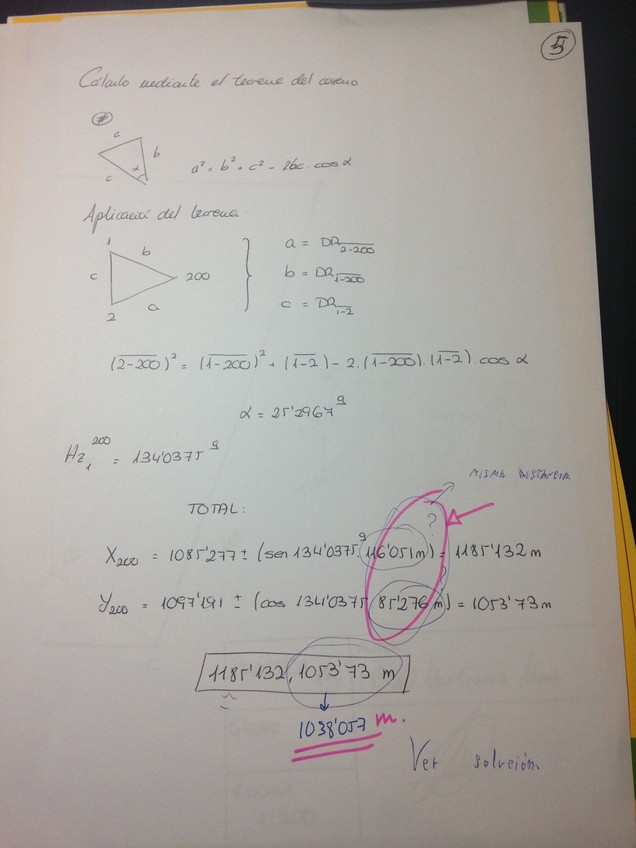 5
Cálculo mediante el teorema del coseno
#
c
b
α
c
a² = b² + c² - 2bc. cos α
Aplicació del teorema
1
b
c
200
2
a
a = DR 2-200
b = DR 1-200
c = DR 1-2
(2-200)² = (1-200)² + (1-2) - 2. (1-200). (1-2) cos α
α = 25'2967 g
Hz₁²⁰⁰ = 134'0375 g
MISMA DISTANCIA
TOTAL:
?
X₂₀₀ = 1085'277 ± (sen 134'0375 g. 116'051m) = 1185'132 m
Y₂₀₀ = 1097'191 ± (cos 134'0375 85'276 m) = 1053'73 m
1185'132, 1053'73 m
1038'057 m.
Ver solución